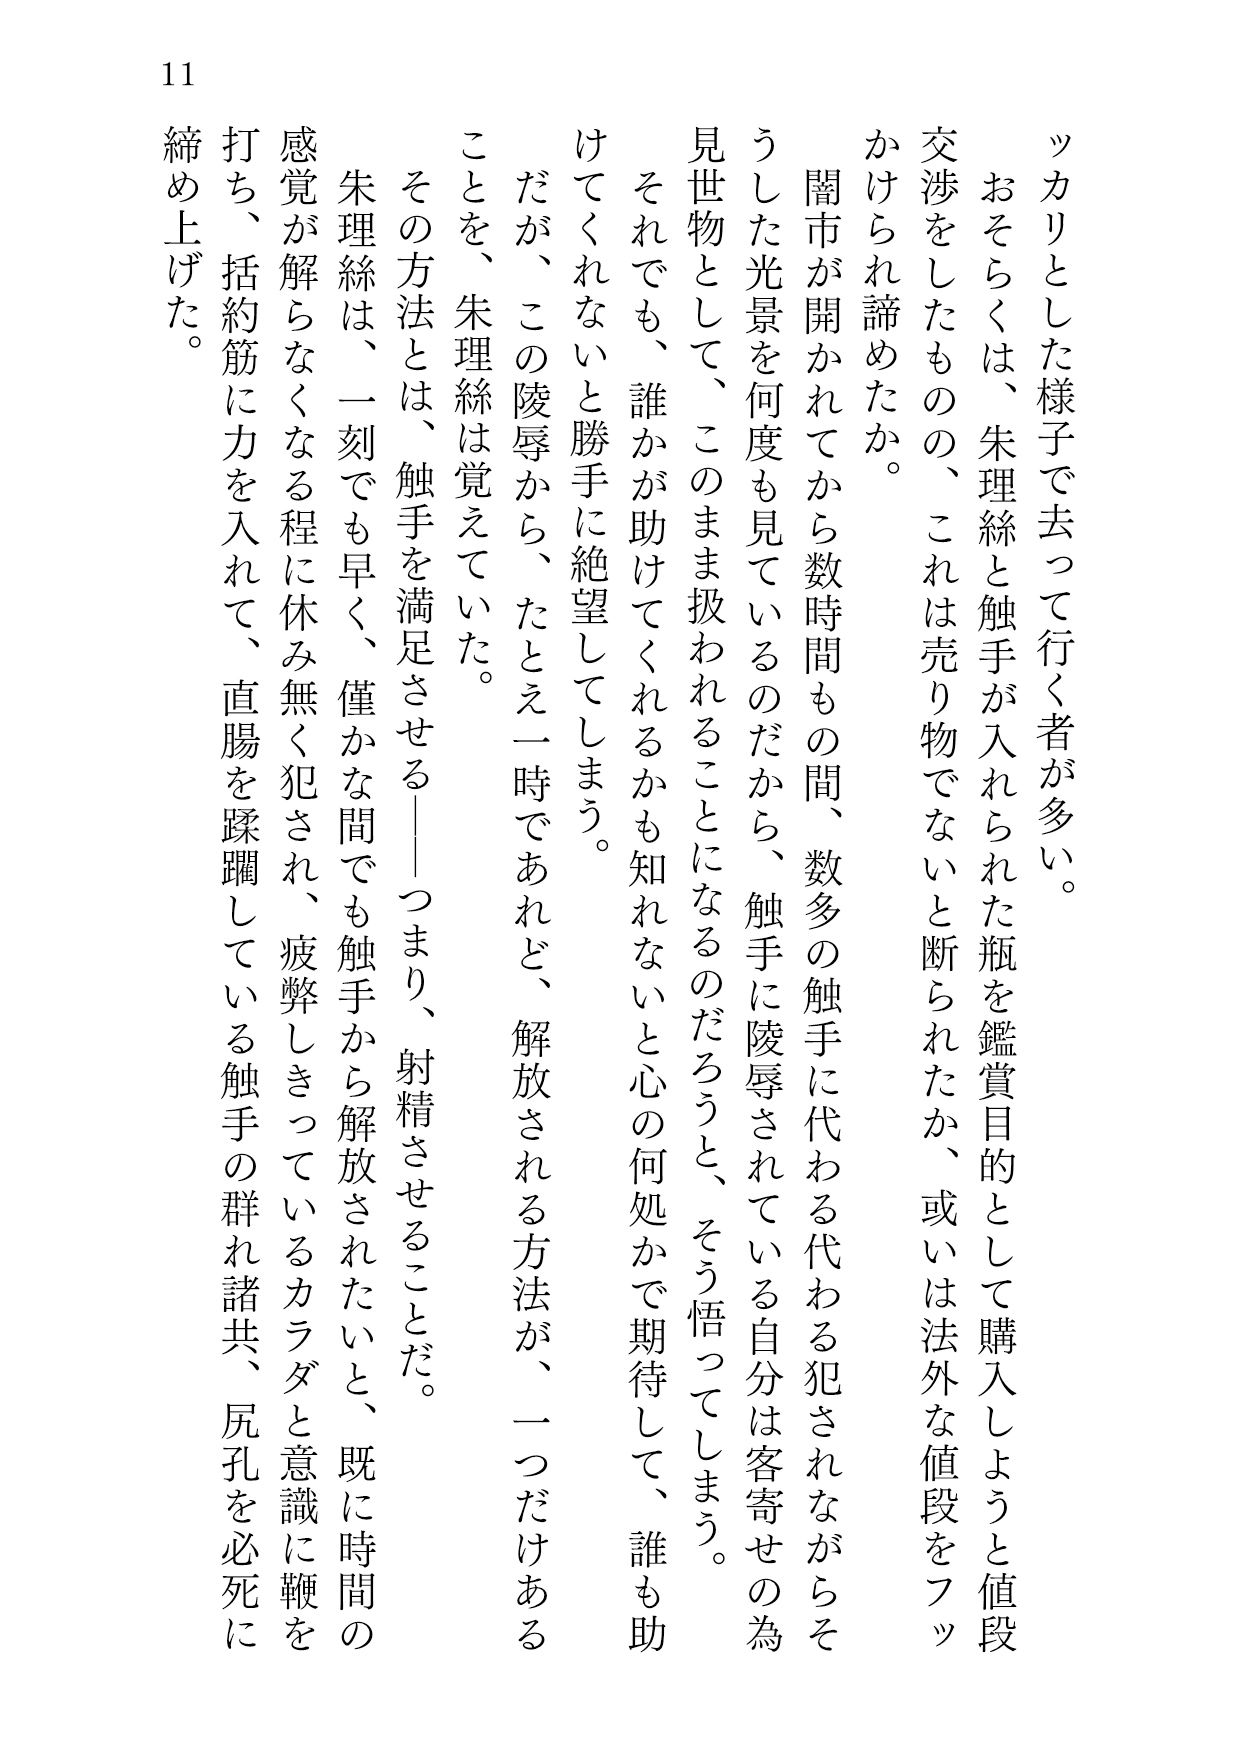 11
ッカリとした様子で去って行く者が多い。
　おそらくは、朱理絲と触手が入れられた瓶を鑑賞目的として購入しようと値段
交渉をしたものの、これは売り物でないと断られたか、或いは法外な値段をフッ
かけられ諦めたか。
　闇市が開かれてから数時間もの間、数多の触手に代わる代わる犯されながらそ
うした光景を何度も見ているのだから、触手に陵辱されている自分は客寄せの為
見世物として、このまま扱われることになるのだろうと、そう悟ってしまう。
　それでも、誰かが助けてくれるかも知れないと心の何処かで期待して、誰も助
けてくれないと勝手に絶望してしまう。
　だが、この陵辱から、たとえ一時であれど、解放される方法が、一つだけある
ことを、朱理絲は覚えていた。
　その方法とは、触手を満足させる――つまり、射精させることだ。
　朱理絲は、一刻でも早く、僅かな間でも触手から解放されたいと、既に時間の
感覚が解らなくなる程に休み無く犯され、疲弊しきっているカラダと意識に鞭を
打ち、括約筋に力を入れて、直腸を蹂躙している触手の群れ諸共、尻孔を必死に
締め上げた。